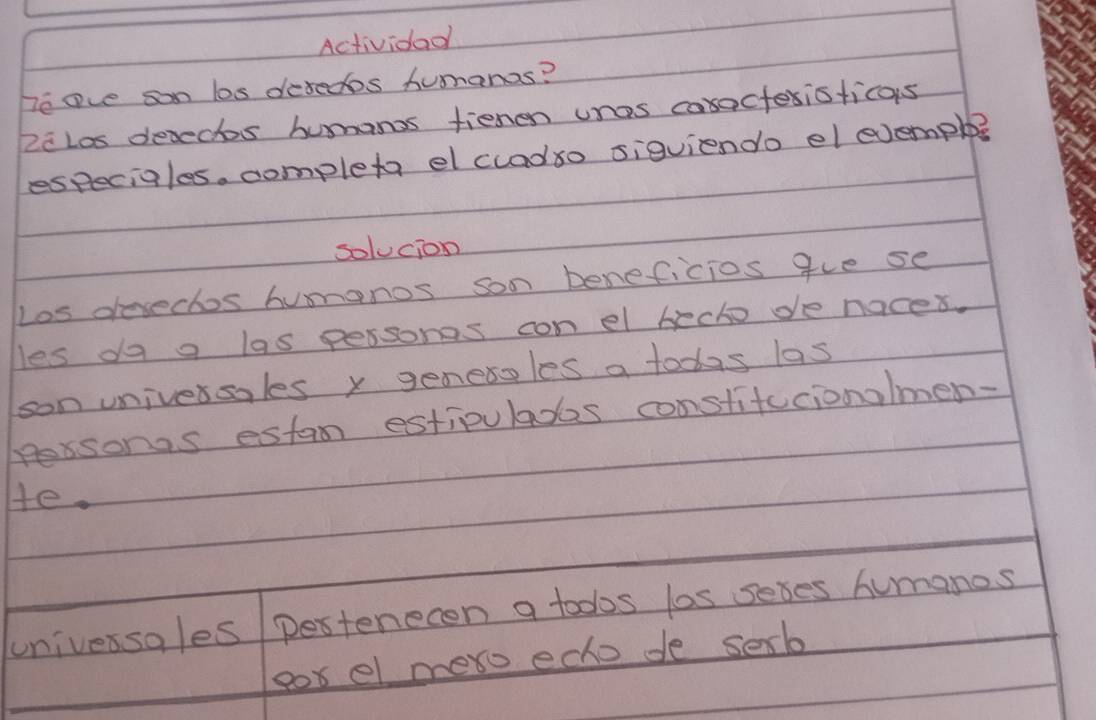 Actividad
1¿ Que son los derechos humanos?
2¿ Los derechos humanos tienen unas caracteristicas
especiales. completa el cuadro siguiendo el ejemplo?
solucion
Los derechos humanos son beneficios que se
les da a las personas con el hecho de nacer.
son universales y generales a todas las
personas estan estipulados constitucionalmen-
te.
universales Pertenecen a todos los seres humanos
por el mero echo de serlo